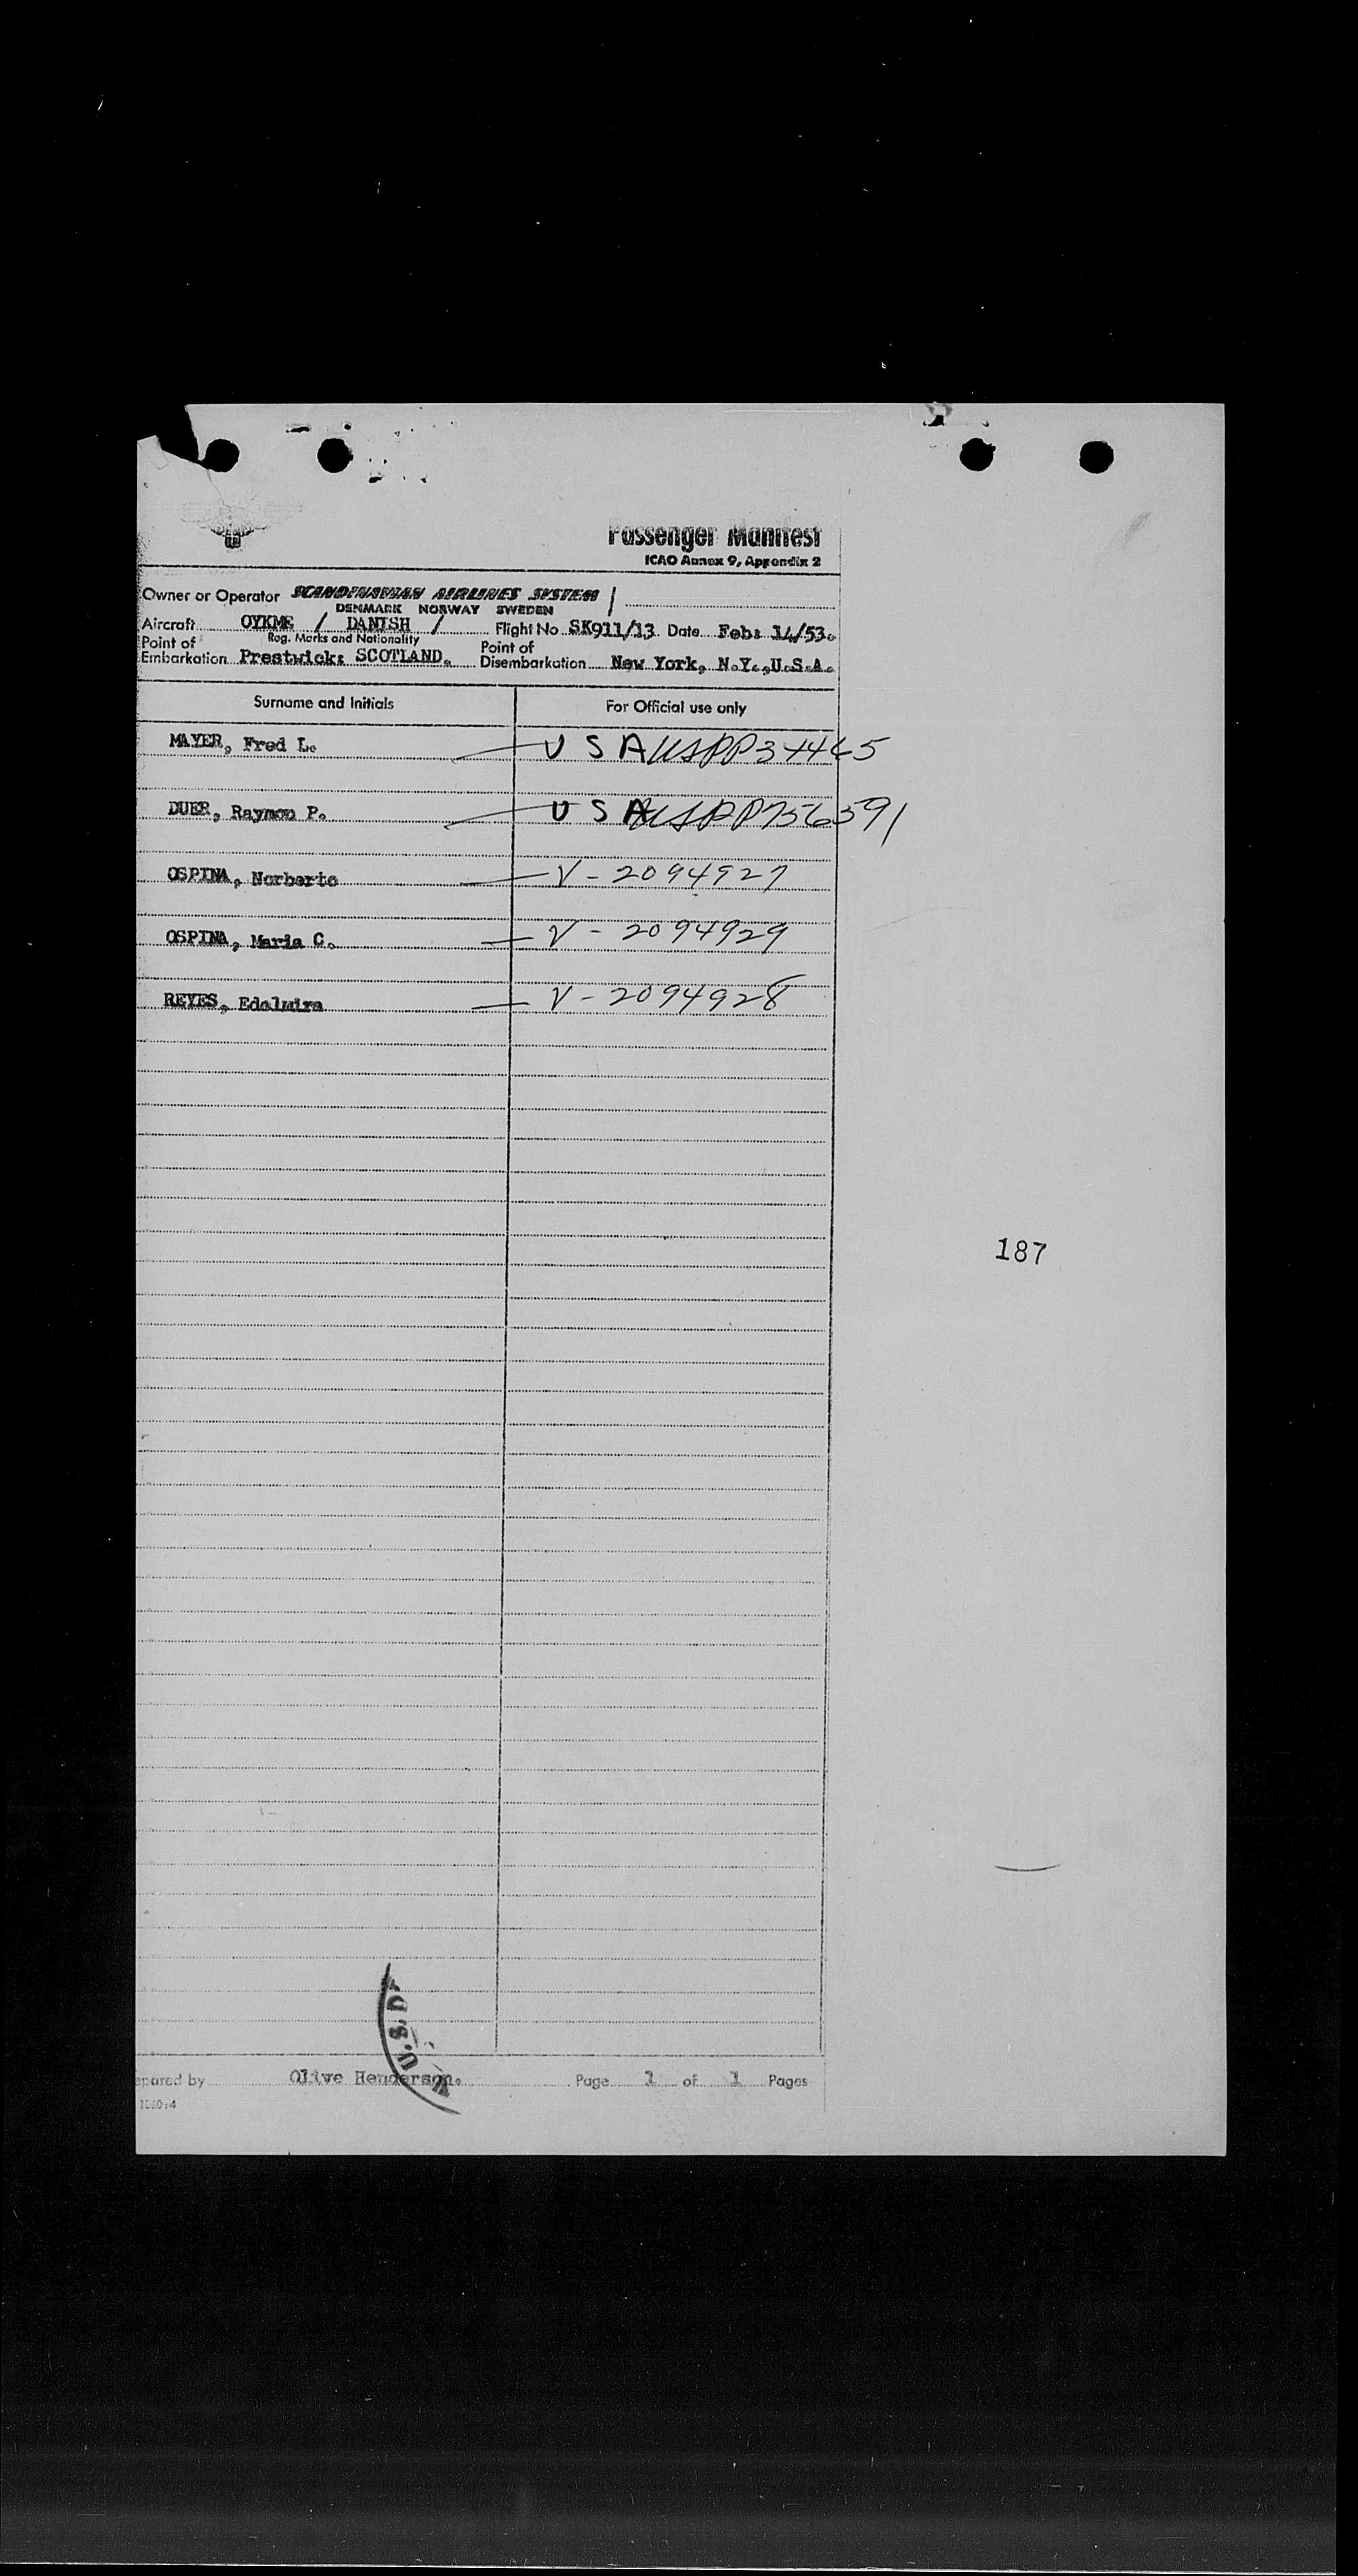 Passenger Manifest
ICAO Annex 9, Appendix 2
Owner or Operator SCANDINAVIAN AIRLINES SYSTEM /
DENMARK NORWAY SWEDEN
Aircraft OYKME / DANISH / Flight No. SK911/13 Date Feb: 14/53.
Reg. Marks and Nationality
Point of Embarkation Prestwick: SCOTLAND. Point of Disembarkation New York, N.Y.,U.S.A.
Surname and Initials For Official use only
MAYER, Fred L. U S A USPP
DUER, Raymon P. U S A USPP756591
OSPINA, Norberto V - 2094927
OSPINA, Maria C. V - 2094929
REYES, Edelmira V - 2094928
187
U.S. D
epared by Olive Henderson. Page 1 of 1 Pages